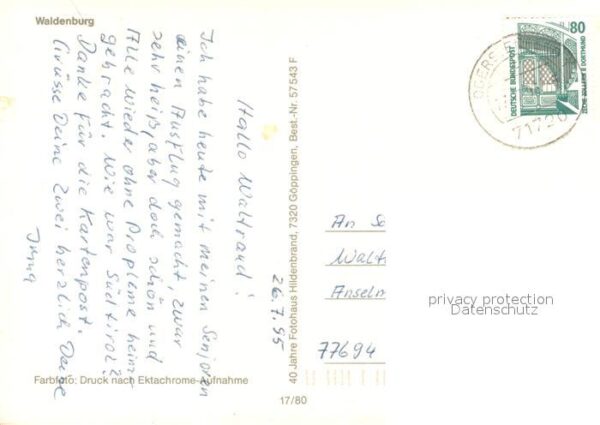 Waldenburg
Hallo Waltraud!
26.7.95
Ich habe heute mit meinen Senioren
einen Ausflug gemacht, zwar
sehr heiß, aber doch schön und
Alle wieder ohne Probleme heim-
gebracht. Wie war Südtirol?
Danke für die Kartenpost.
Grüsse Deine zwei herzlich Deine
Irma
Farbfoto: Druck nach Ektachrome-Aufnahme
40 Jahre Fotohaus Hildenbrand, 7320 Göppingen, Best-Nr. 57543 F
17/80
80
DEUTSCHE BUNDESPOST
ZECHE ZOLLERN II DORTMUND
OBERS
71720
An
Walt
Anselm
77694
privacy protection
Datenschutz